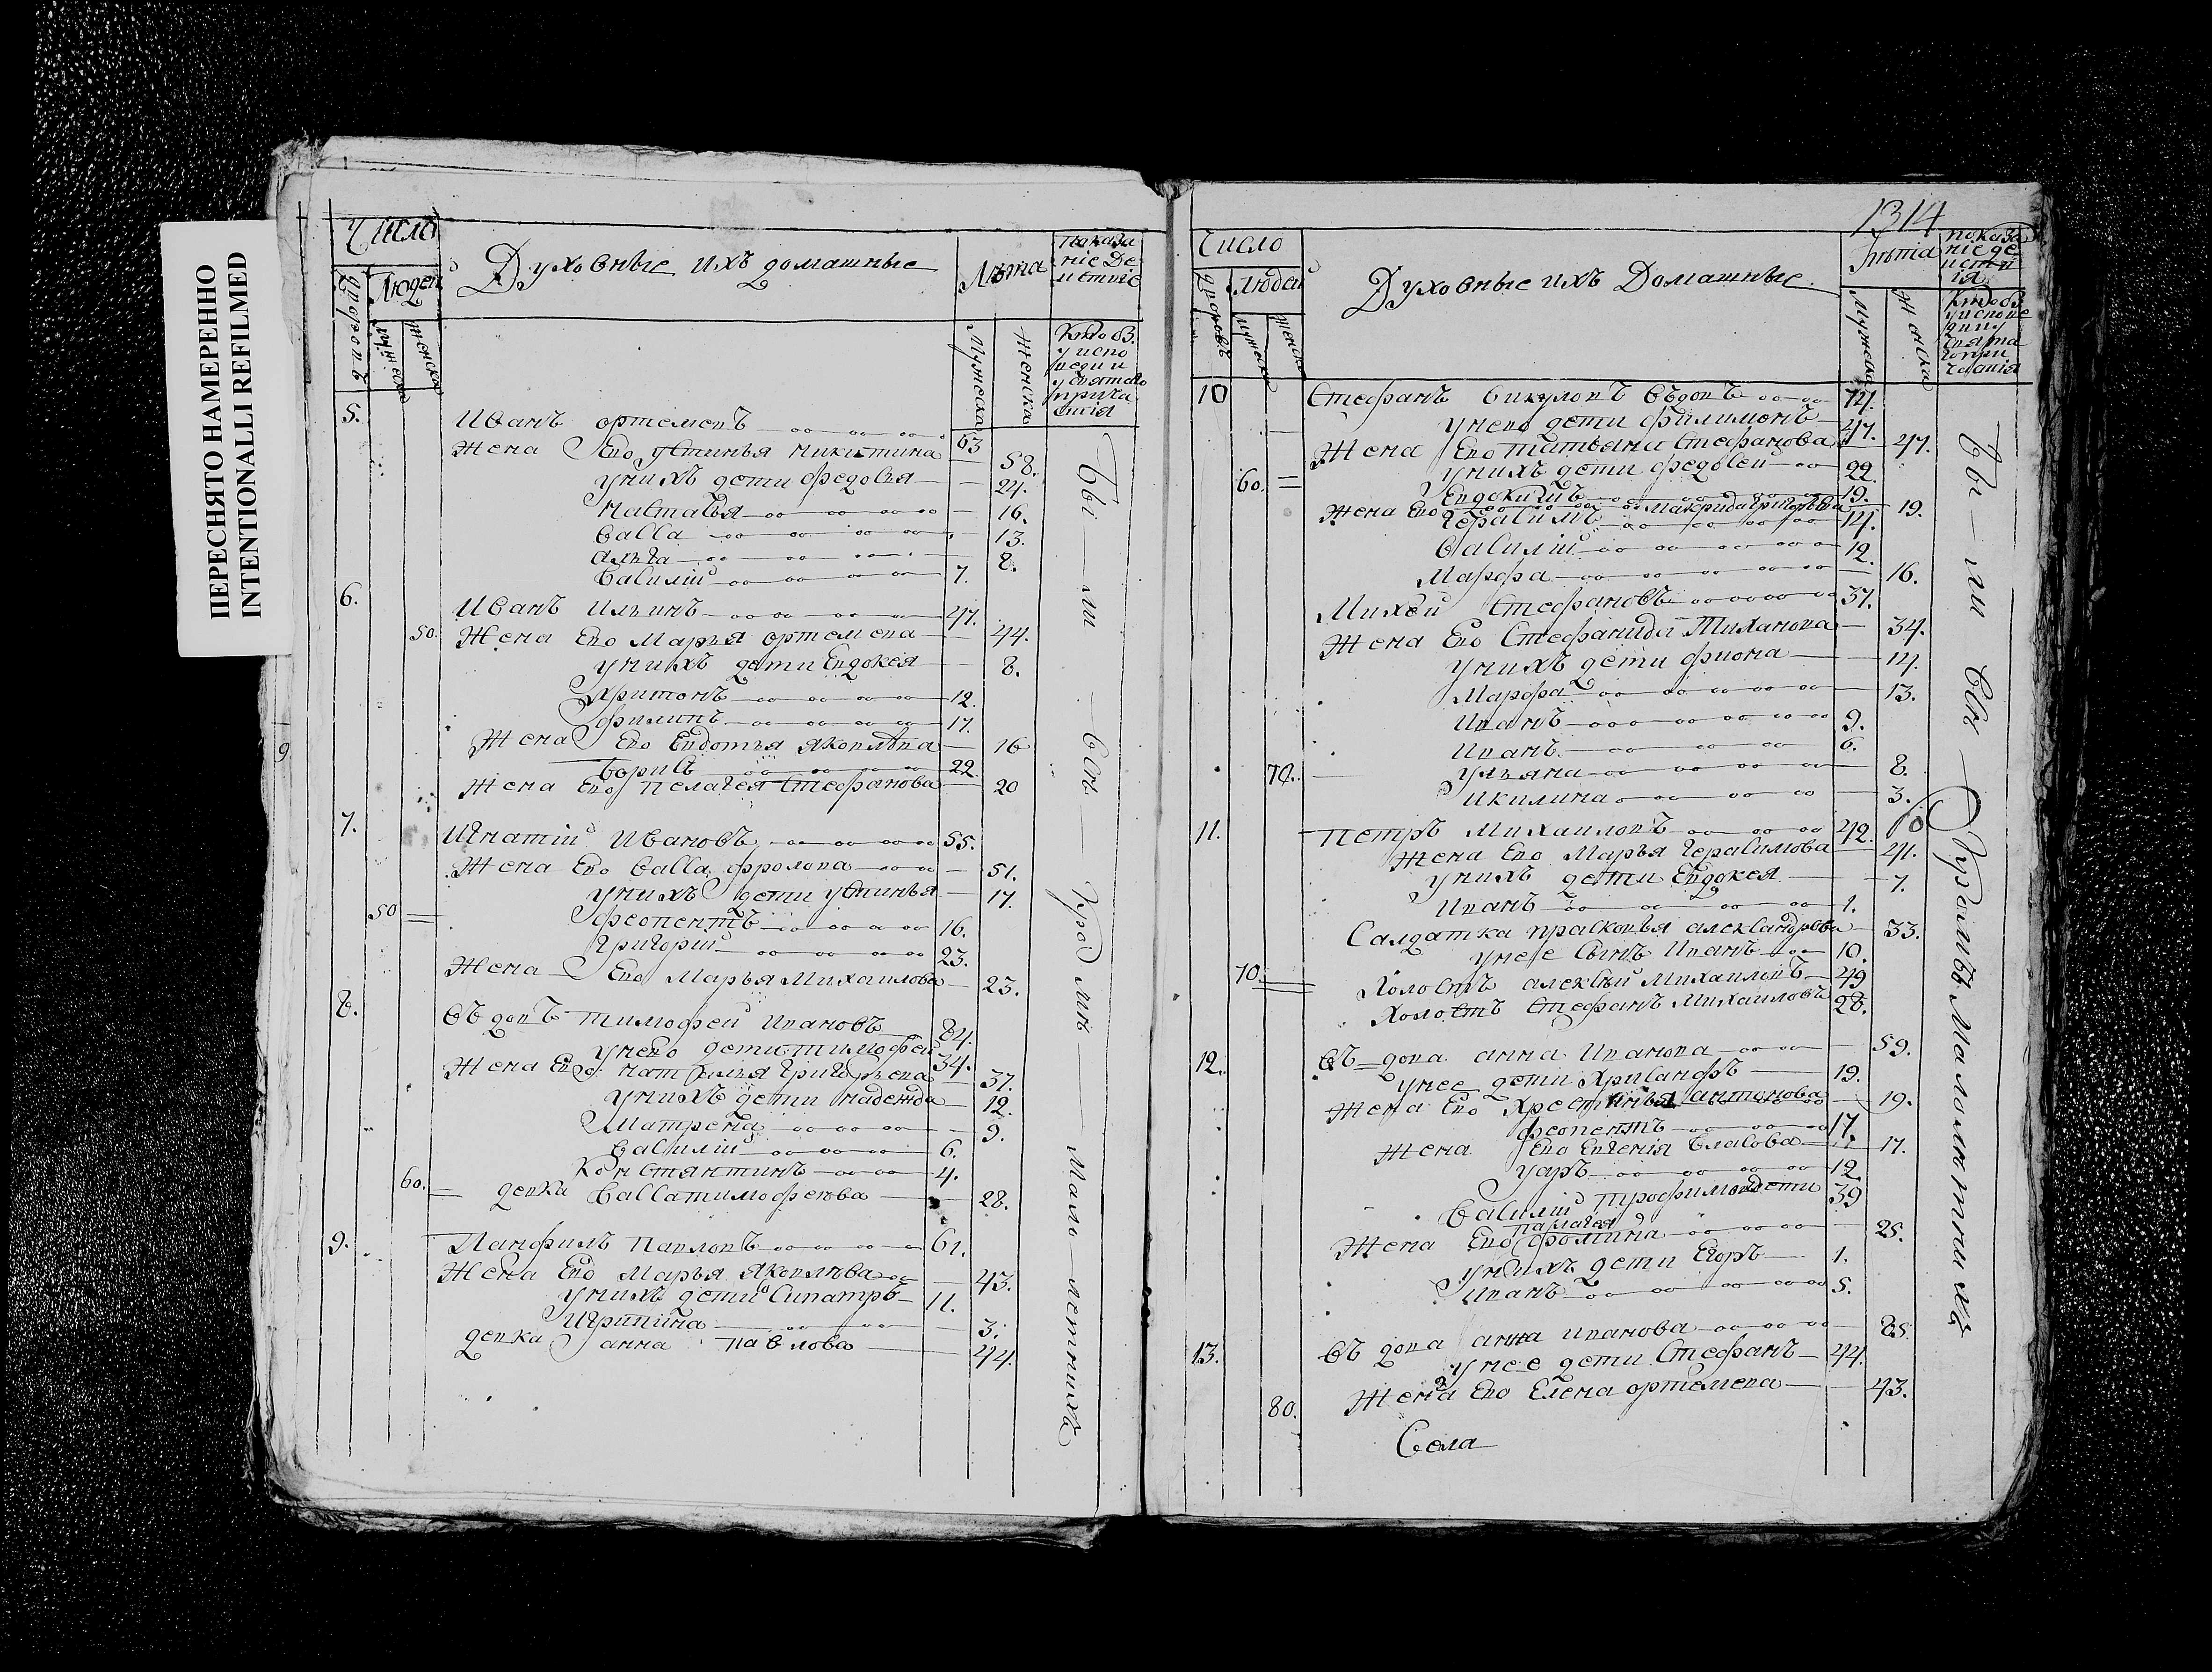 ПЕРЕСНЯТО НАМЕРЕННО
INTENTIONALLI REFILMED
Число
Духовные ихъ домашные
Лѣта
показа
ніе де
иствіе
дворовъ
Людей
мужеска
женска
Мужеска
Женска
кто б.
у испо
веди и
у святаго
прича
стія
5.
Иванъ ортемевъ 63
Жена Ево устинья микитина 58.
у нихъ дети федосья 24.
наталья 16.
васса 13.
8.
василій 7.
6.
Иванъ Ильинъ 47.
50. Жена Ево Марья ортемева 44.
у нихъ дети Евдокея 8.
Харитонъ 12.
филипъ 17.
Жена Ево Евдотья яковлева 16
борисъ 22.
Жена Ево пелагея Стефанова 20
7.
Игнатіи Ивановъ 55.
Жена Ево васса фролова 51.
у нихъ дети устинья 17.
50 феопентъ 16.
Григорий 23.
Жена Ево Марья Михаилова 23.
8.
въдовъ тимофеи Ивановъ 84.
у нево дети тимофей 34.
Жена Ево наталья Григорьева 37.
у нихъ дети надежда 12.
Матрена 9.
василій 6.
Констянтинъ 4.
60. девка васса тимофеева 28.
9.
Панфилъ павловъ 61.
Жена Ево Марья яковлева 43.
у нихъ дети Сипатръ 11.
Игрипина 3.
девка анна павлова 44.
бы ли вси Кромѣ мало летнихъ
9
1314
Число
Духовные ихъ Домашные
Лѣта
показа
ніе де
иств
ія
дворовъ
Людей
мужеска
женска
Мужеска
Женска
кто б.
у испове
ди и у
свята
го при
частія
10
Стефанъ викуловъ въдовъ 74.
у нево дети филимонъ 47.
Жена Ево татьяна Стефанова 47.
60. у нихъ дети федосеи 22.
Евдокимъ 19.
Жена Ево макрида григорьева 19.
герасимъ 14.
василій 12.
Марфа 16.
Михей Стефановъ 37.
Жена Ево Стефанида Тиханова 34.
у нихъ дети фиона 14.
Марфа 13.
Иванъ 9.
Иванъ 6.
70. ульяна 8.
икилина 3.
11.
петръ Михаиловъ 42.
Жена Ево Марья герасимова 41.
у нихъ дети Евдокея 7.
Иванъ 1.
Салдатка прасковья александрова 33.
у нее сынъ Иванъ 10.
70. Холостъ алексѣй Михаиловъ 49
Холостъ Стефанъ Михаиловъ 28.
12.
въдова анна Иванова 59.
у нее дети Хрисанфъ 19.
Жена Ево Хрестинья антонова 19.
феопентъ 17.
Жена Ево Евгенія власова 17.
уаръ 12
василій трофимовъ дети 39
палагея
Жена Ево фомина 25.
у нихъ дети Егоръ 1.
Иванъ 5.
13.
въдова анна иванова 85.
у нее дети Стефанъ 44.
80. Жена Ево Елена ортемева 43.
Села
бы ли вси Окромѣ Малолѣтнихъ